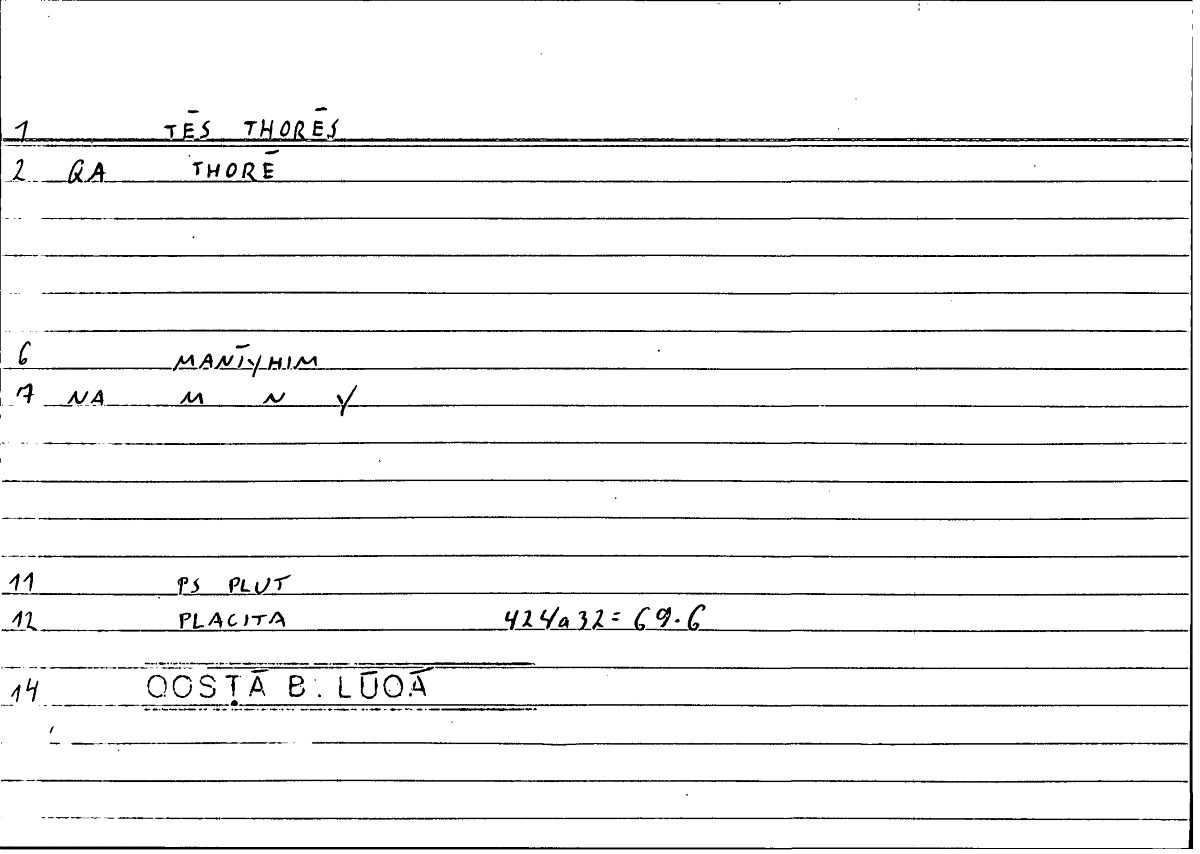 1 TĒS THORĒS
2 QA THORĒ
6 MANĪYHIM
7 NA M N Y
11 PS PLUT
12 PLACITA 424a32=69.6
14 QOSṬĀ B. LŪQĀ